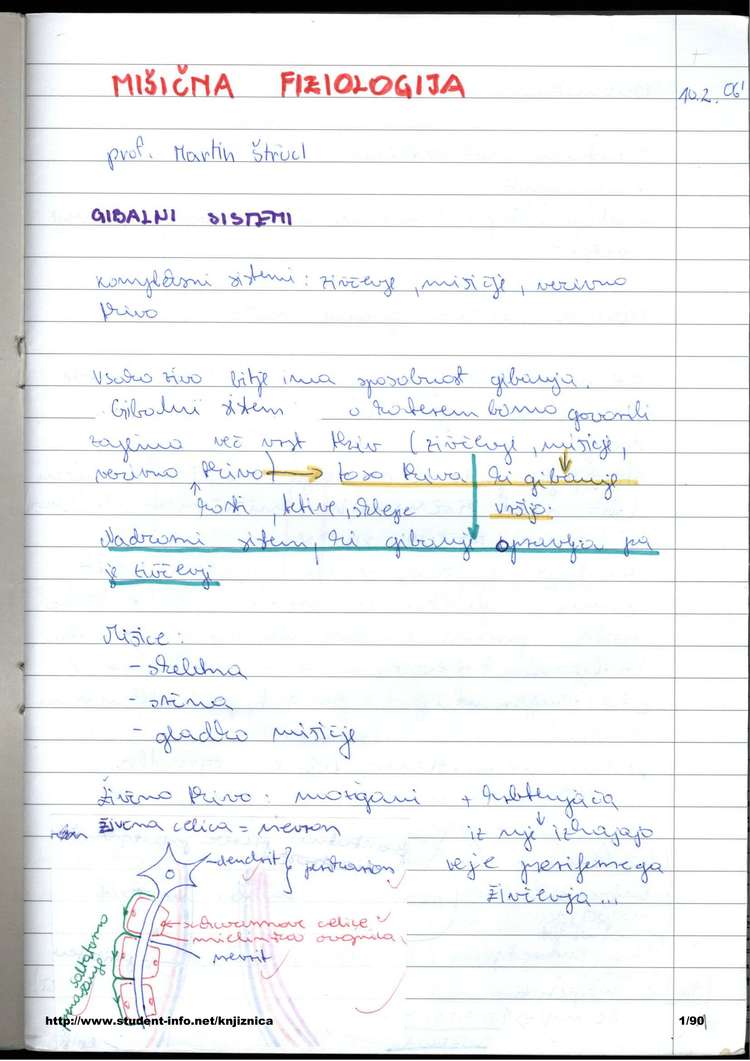 MIŠIČNA FIZIOLOGIJA
10.2. 06'
prof. Martin Štrucl
GIBALNI SISTEMI
kompleksni sistemi: živčevje, mišičje, vezivno
tkivo
Vsako živo bitje ima sposobnost gibanja.
Gibalni sistem o katerem bomo govorili
zajema več vrst tkiv (živčevje, mišičje,
vezivno tkivo) → to so tkiva ki gibanje
kosti, tetive, sklepe vršijo.
Nadzorni sistem, ki gibanje opravlja pa
je živčevje
Mišice:
- skeletna
- srčna
- gladko mišičje
Živčno tkivo: možgani + hrbtenjača
živčna celica = nevron iz nje izhajajo
dendrit } perikarion veje perifernega
živčevja...
schwannove celice
mielinska ovojnica
nevrit
saltatorno
http://www.student-info.net/knjiznica
1/90